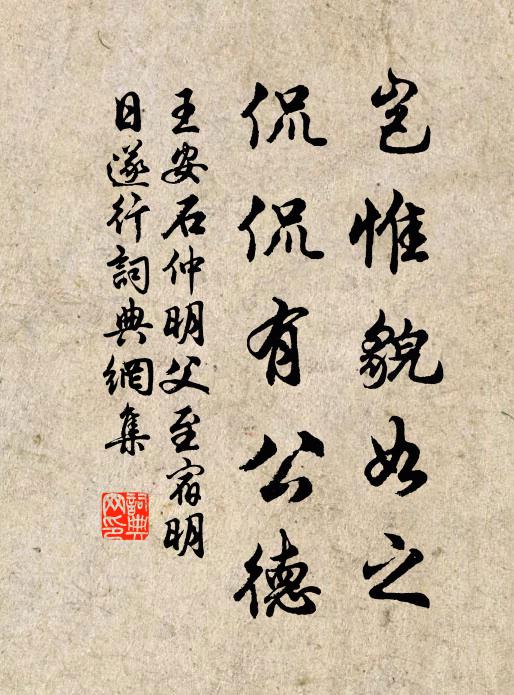 豈惟貌如之
侃侃有公德
王安石仲明父至宿明
日遂行詞典網集
詞典
网印